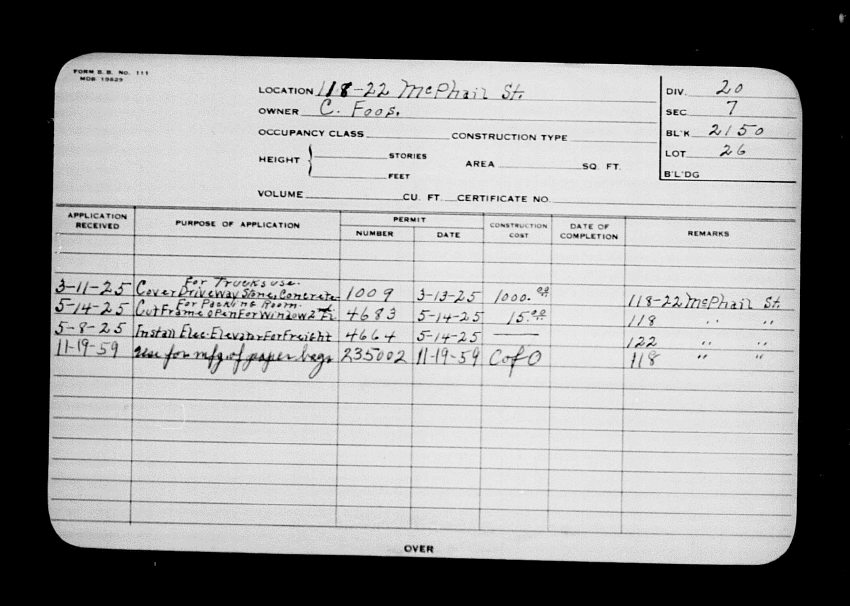 FORM B. B. No. 111
MDB 19629
LOCATION 118-22 McPhail St.
OWNER C. Foos.
OCCUPANCY CLASS CONSTRUCTION TYPE
HEIGHT { STORIES AREA SQ. FT.
FEET
VOLUME CU. FT. CERTIFICATE NO.
DIV. 20
SEC 7
BL'K 2150
LOT 26
B'L'DG
APPLICATION RECEIVED PURPOSE OF APPLICATION PERMIT NUMBER DATE CONSTRUCTION COST DATE OF COMPLETION REMARKS
For Trucks use.
3-11-25 Cover Driveway Stone, Concrete 1009 3-13-25 1000.00 118-22 McPhail St.
For Packing Room.
5-14-25 Cut Frame open For Window 2nd Fl 4683 5-14-25 15.00 118 " "
5-8-25 Install Elec. Elevator For Freight 4664 5-14-25 — 122 " "
11-19-59 use for mfg of paper bags 235002 11-19-59 C of O 118 " "
OVER